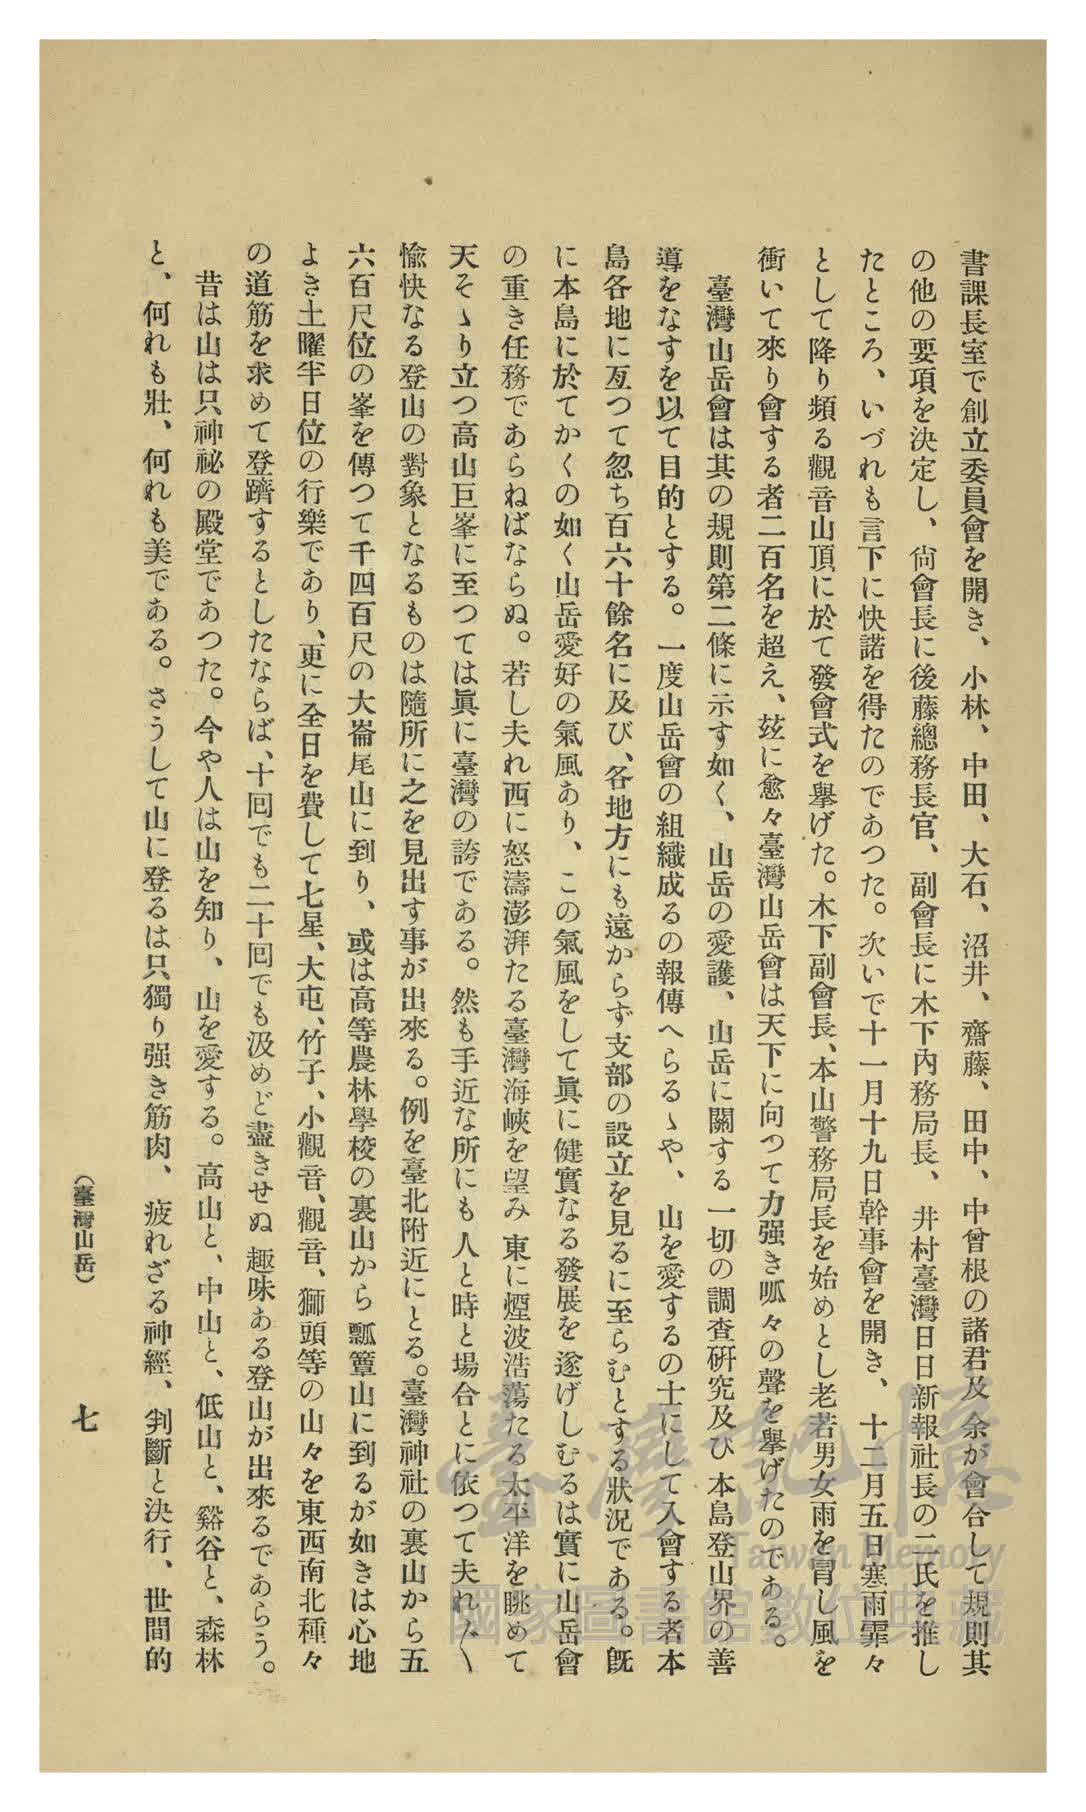 書課長室で創立委員會を開き、小林、中田、大石、沼井、齋藤、田中、中曾根の諸君及余が會合して規則其
の他の要項を決定し、尙會長に後藤總務長官、副會長に木下內務局長、井村臺灣日日新報社長の二氏を推し
たところ、いづれも言下に快諾を得たのであつた。次いで十一月十九日幹事會を開き、十二月五日寒雨霏々
として降り頻る觀音山頂に於て發會式を擧げた。木下副會長、本山警務局長を始めとし老若男女雨を冐し風を
衝いて來り會する者二百名を超え、玆に愈々臺灣山岳會は天下に向つて力强き呱々の聲を擧げたのである。
臺灣山岳會は其の規則第二條に示す如く、山岳の愛護、山岳に關する一切の調査硏究及び本島登山界の善
導をなすを以て目的とする。一度山岳會の組織成るの報傳へらるゝや、山を愛するの士にして入會する者本
島各地に亙つて忽ち百六十餘名に及び、各地方にも遠からず支部の設立を見るに至らむとする狀況である。旣
に本島に於てかくの如く山岳愛好の氣風あり、この氣風をして眞に健實なる發展を遂げしむるは實に山岳會
の重き任務であらねばならぬ。若し夫れ西に怒濤澎湃たる臺灣海峽を望み東に煙波浩蕩たる太平洋を眺めて
天そゝり立つ高山巨峯に至つては眞に臺灣の誇である。然も手近な所にも人と時と場合とに依つて夫れ〲
愉快なる登山の對象となるものは隨所に之を見出す事が出來る。例を臺北附近にとる。臺灣神社の裏山から五
六百尺位の峯を傳つて千四百尺の大崙尾山に到り、或は高等農林學校の裏山から瓢簞山に到るが如きは心地
よき土曜半日位の行樂であり、更に全日を費して七星、大屯、竹子、小觀音、觀音、獅頭等の山々を東西南北種々
の道筋を求めて登躋するとしたならば、十回でも二十回でも汲めど盡きせぬ趣味ある登山が出來るであらう。
昔は山は只神祕の殿堂であつた。今や人は山を知り、山を愛する。高山と、中山と、低山と、谿谷と、森林
と、何れも壯、何れも美である。さうして山に登るは只獨り强き筋肉、疲れざる神經、判斷と決行、世間的
(臺灣山岳)
七
臺灣記憶
Taiwan Memory
國家圖書館數位典藏